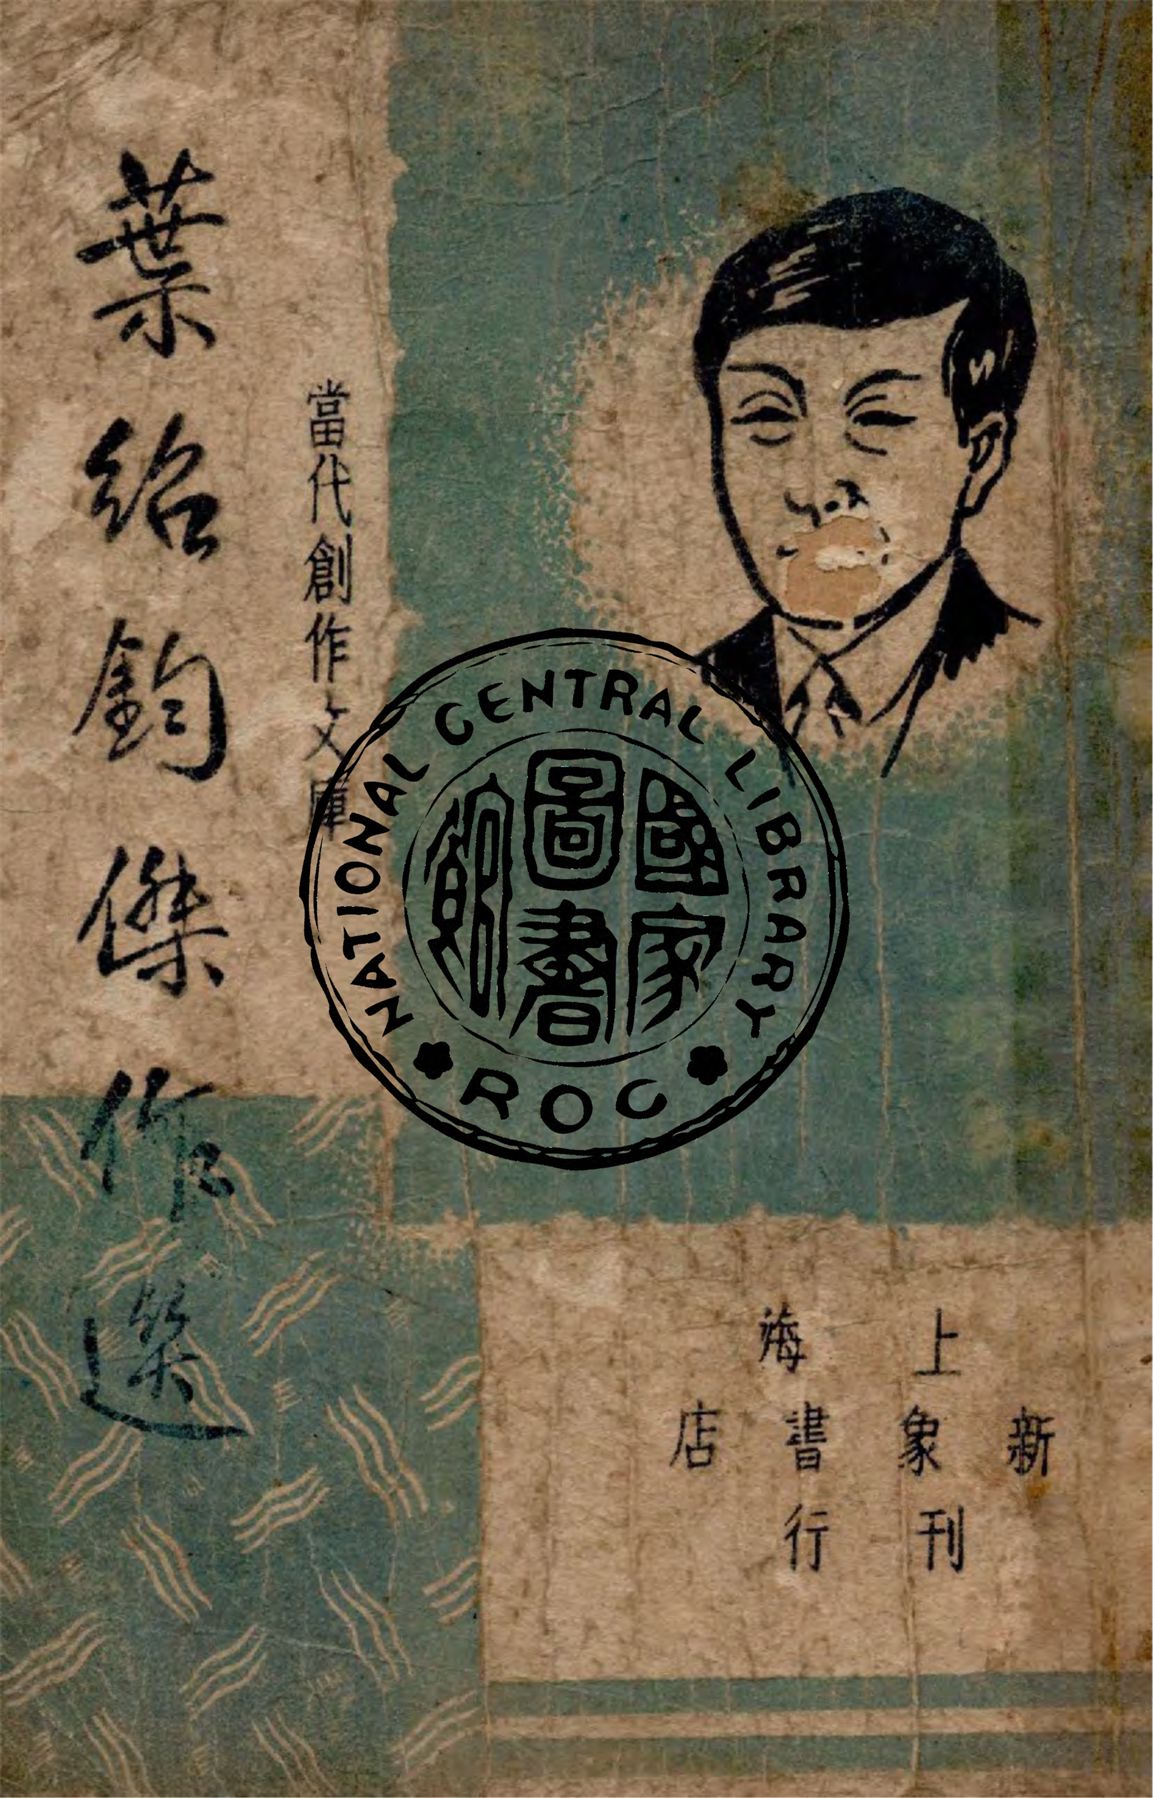 葉紹鈞傑作選
當代創作文庫
NATIONAL CENTRAL LIBRARY
國家
圖書
館
ROC
上海
新象書店
刊行